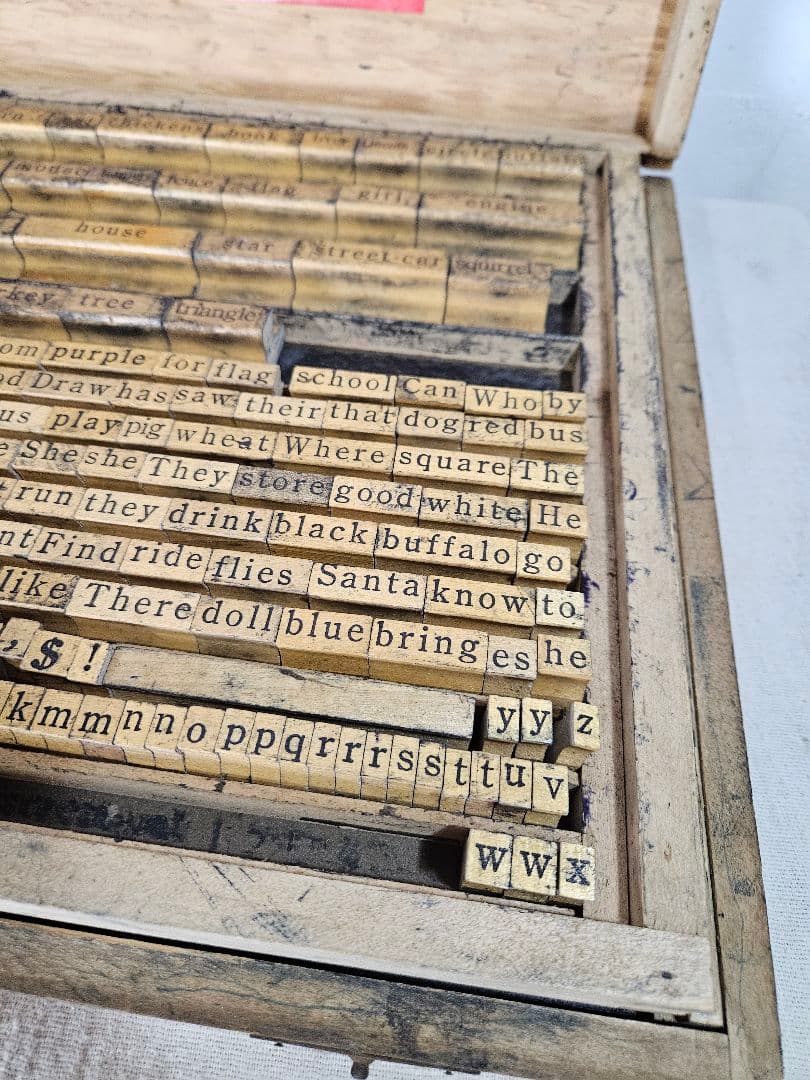 chickens book
house flag girl engine
house star street-car squirrel
key tree triangle
om purple for flag school Can Who by
d Draw has saw their that dog red bus
us play pig wheat Where square The
e She she They store good white He
run they drink black buffalo go
nt Find ride flies Santa know to
like There doll blue bring es he
, $ !
y y z
k m m n n o p p q r r r s s t t u v
w w x